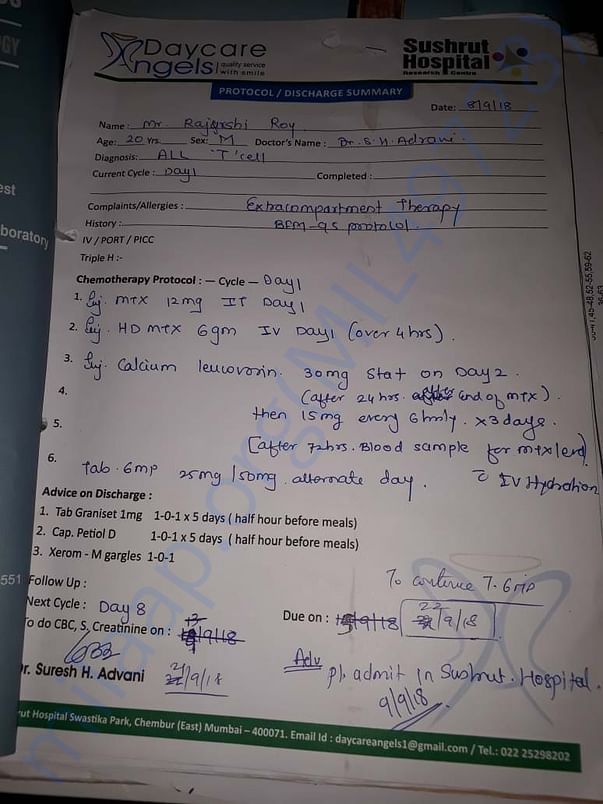 Daycare
Angels quality service
with smile
Sushrut
Hospital
Research Centre
PROTOCOL / DISCHARGE SUMMARY
Date: 8/9/18
Name: Mr. Rajarshi Roy
Age: 20 Yrs. Sex: M Doctor's Name: Dr. S. H. Advani.
Diagnosis: ALL 'T' cell
Current Cycle: Day1 Completed:
Complaints/Allergies: Extracompartment Therapy
History: BFM-95 protocol.
IV / PORT / PICC
Triple H:-
Chemotherapy Protocol: — Cycle — Day1
1. Inj. MTX 12mg IT Day1
2. Inj. HD MTX 6gm IV Day1 (over 4hrs).
3. Inj. Calcium leucovorin. 30mg Stat on Day2.
4. (after 24hrs. after end of MTX).
then 15mg every 6hrly. x3 days.
5.
[after 72hrs. Blood sample for MTX level]
6. Tab. 6mp 25mg/50mg. alternate day. c̄ IV Hydration
Advice on Discharge:
1. Tab Graniset 1mg 1-0-1 x 5 days ( half hour before meals)
2. Cap. Petiol D 1-0-1 x 5 days ( half hour before meals)
3. Xerom - M gargles 1-0-1
Follow Up:
To continue T. 6mp
Next Cycle: Day 8 Due on: 22/9/18
To do CBC, S, Creatinine on: /9/18
21/9/18
Dr. Suresh H. Advani
Adv
pl. admit in Sushrut. Hospital.
9/9/18
rut Hospital Swastika Park, Chembur (East) Mumbai – 400071. Email Id : daycareangels1@gmail.com / Tel.: 022 25298202
est
boratory
551